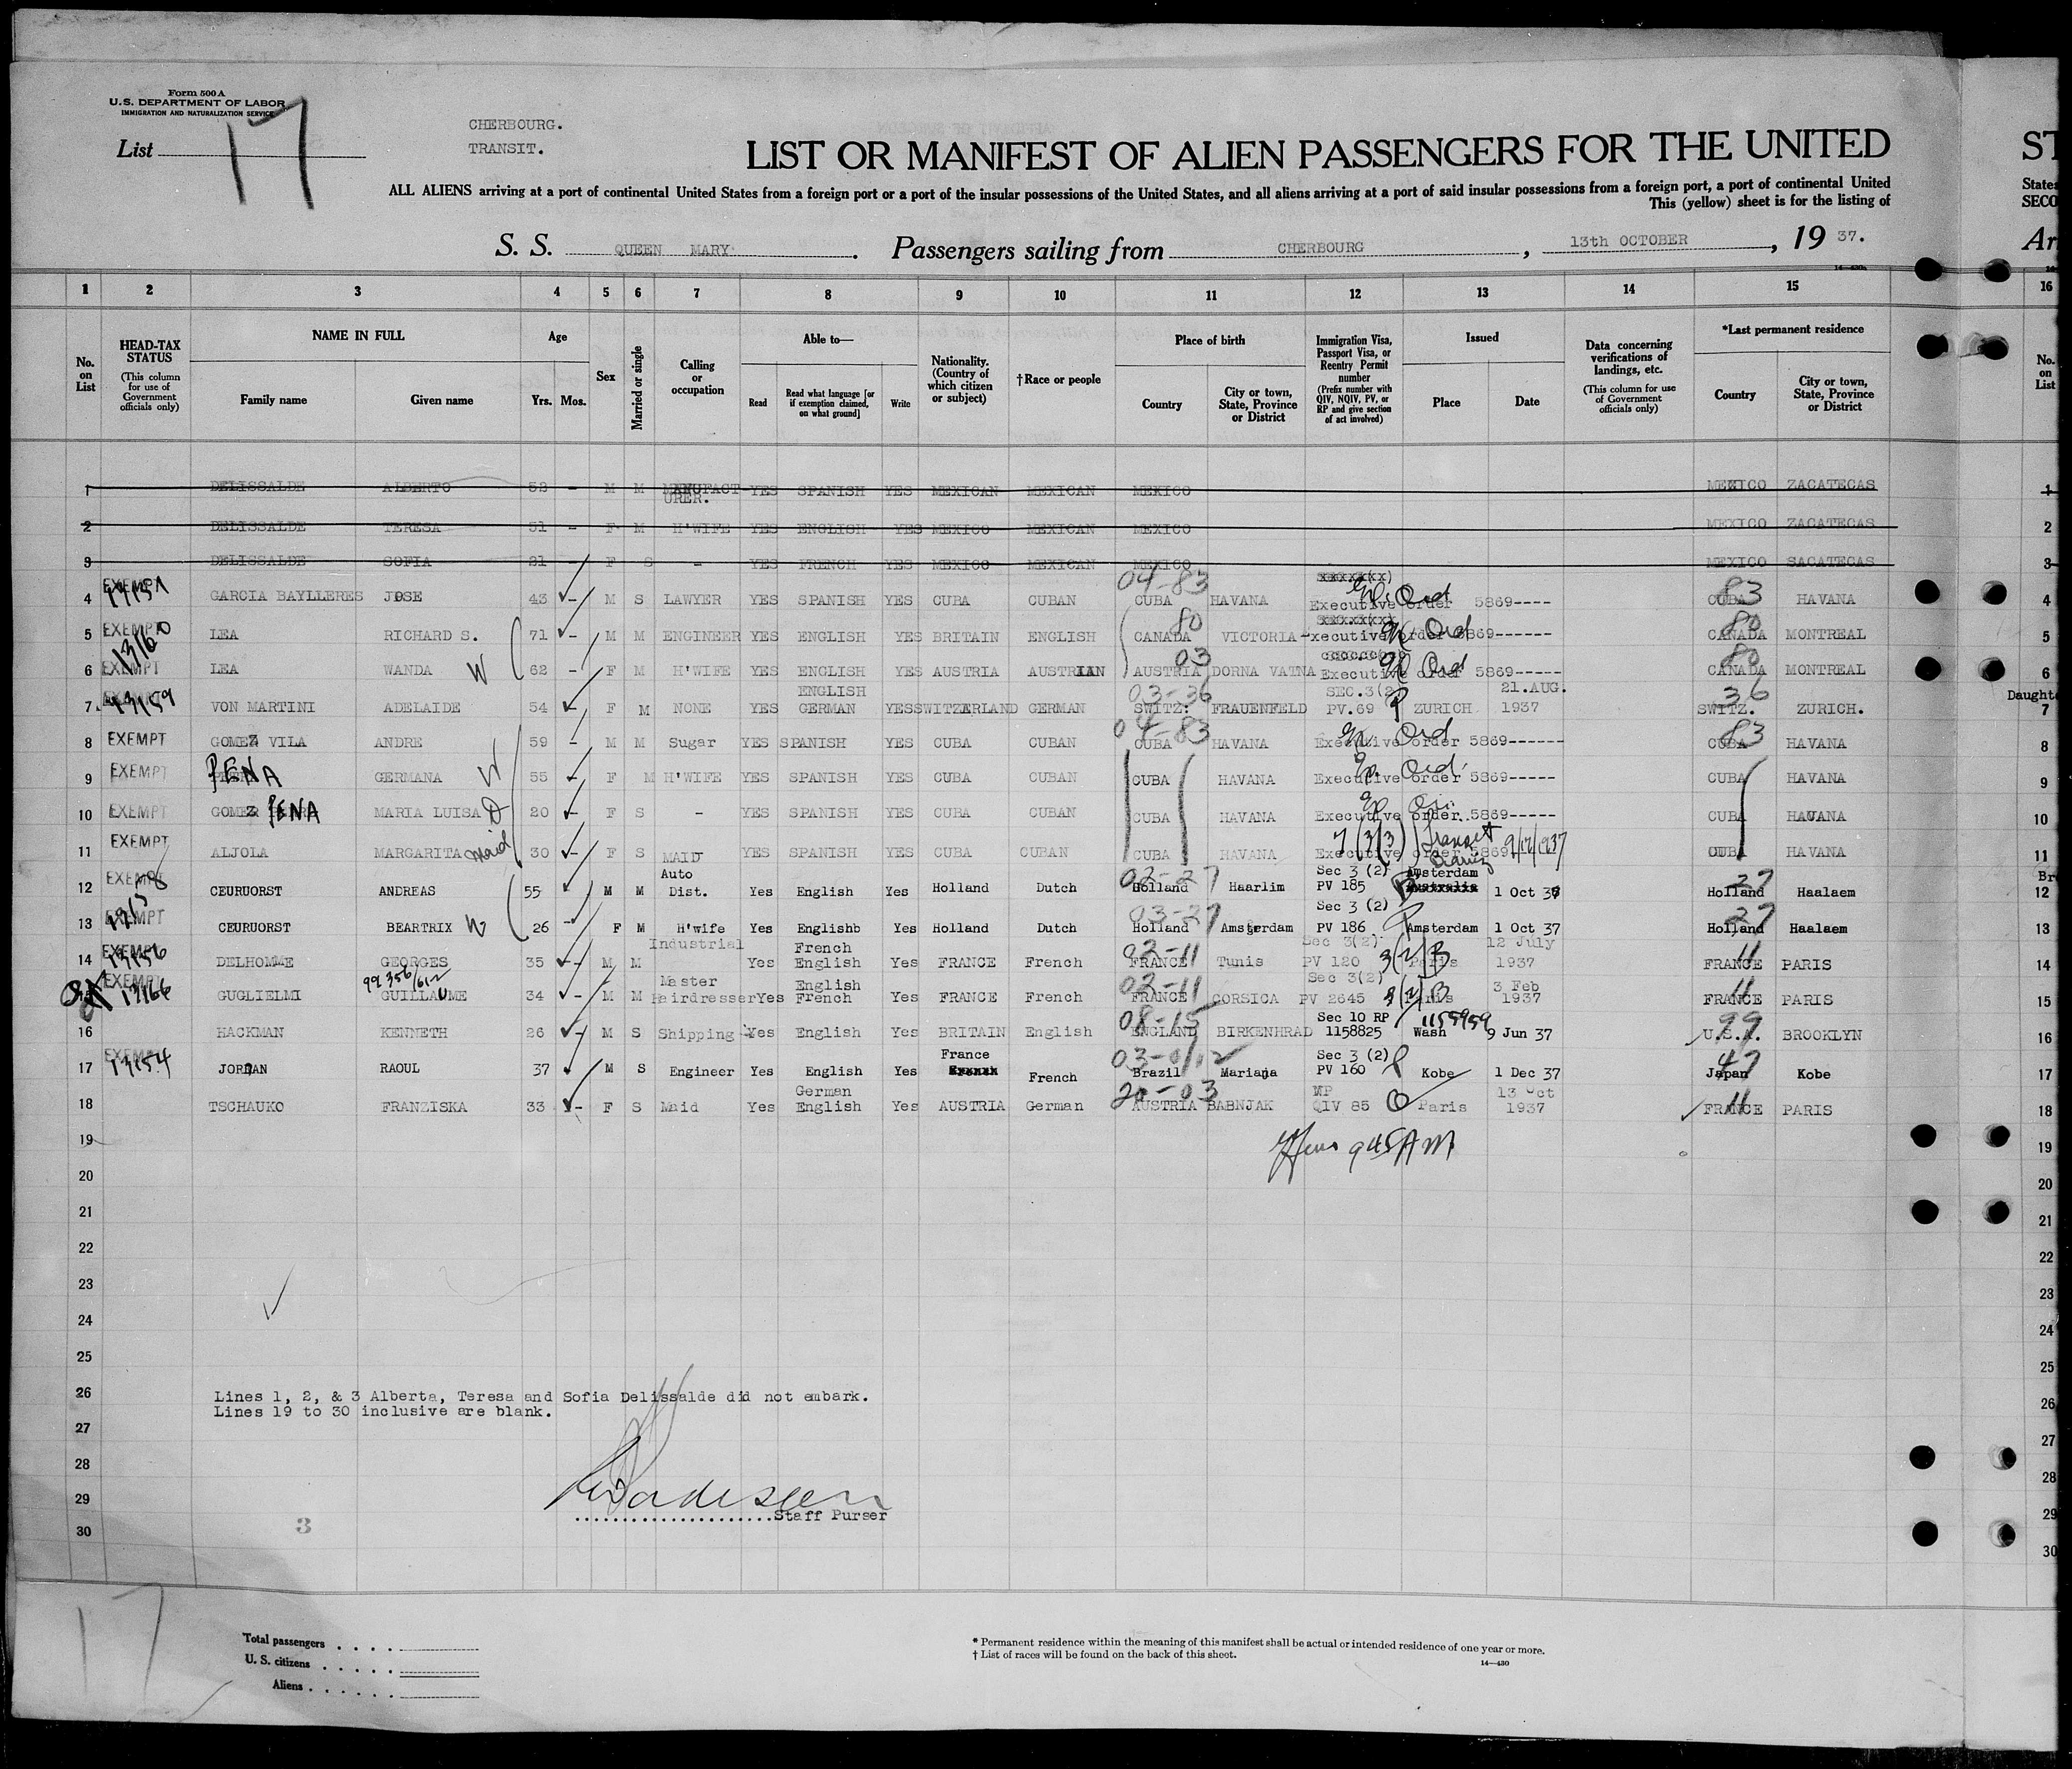 Form 500 A
U.S. DEPARTMENT OF LABOR
IMMIGRATION AND NATURALIZATION SERVICE
List 17
CHERBOURG.
TRANSIT.
LIST OR MANIFEST OF ALIEN PASSENGERS FOR THE UNITED
ST
ALL ALIENS arriving at a port of continental United States from a foreign port or a port of the insular possessions of the United States, and all aliens arriving at a port of said insular possessions from a foreign port, a port of continental United
States
This (yellow) sheet is for the listing of
SECO
S. S. QUEEN MARY. Passengers sailing from CHERBOURG, 13th OCTOBER, 19 37.
Ar
1 2 3 4 5 6 7 8 9 10 11 12 13 14 15 16
No. on List
HEAD-TAX STATUS
(This column for use of Government officials only)
NAME IN FULL
Family name Given name
Age
Yrs. Mos.
Sex
Married or single
Calling or occupation
Able to—
Read
Read what language [or if exemption claimed, on what ground]
Write
Nationality. (Country of which citizen or subject)
†Race or people
Place of birth
Country
City or town, State, Province or District
Immigration Visa, Passport Visa, or Reentry Permit number
(Prefix number with QIV, NQIV, PV, or RP and give section of act involved)
Issued
Place Date
Data concerning verifications of landings, etc.
(This column for use of Government officials only)
*Last permanent residence
Country
City or town, State, Province or District
No. on List
1 DELISSALDE ALBERTO 52 - M M MANUFACTURER. YES SPANISH YES MEXICAN MEXICAN MEXICO MEXICO ZACATECAS 1
2 DELISSALDE TERESA 51 - F M H'WIFE YES ENGLISH YES MEXICO MEXICAN MEXICO MEXICO ZACATECAS 2
3 DELISSALDE SOFIA 21 - F S - YES FRENCH YES MEXICO MEXICAN MEXICO MEXICO SACATECAS 3
4 EXEMPT GARCIA BAYLLERES JOSE 43 - M S LAWYER YES SPANISH YES CUBA CUBAN 04-83 CUBA HAVANA Executive order 5869---- Ex Ord 83 CUBA HAVANA 4
5 EXEMPT 13160 LEA RICHARD S. 71 - M M ENGINEER YES ENGLISH YES BRITAIN ENGLISH 80 CANADA VICTORIA -xecutive order 5869------ Ex Ord 80 CANADA MONTREAL 5
6 EXEMPT LEA WANDA W 62 - F M H'WIFE YES ENGLISH YES AUSTRIA AUSTRIAN 03 AUSTRIA DORNA VATNA Executive order 5869----- Ex Ord 80 CANADA MONTREAL 6
7. 13159 VON MARTINI ADELAIDE 54 - F M NONE YES ENGLISH GERMAN YES SWITZERLAND GERMAN 03-36 SWITZ: FRAUENFELD SEC.3(2) PV.69 P ZURICH 21.AUG. 1937 36 SWITZ. ZURICH. Daughte 7
8 EXEMPT GOMEZ VILA ANDRE 59 - M M Sugar YES SPANISH YES CUBA CUBAN 04-83 CUBA HAVANA Executive order 5869------ Ex Ord 83 CUBA HAVANA 8
9 EXEMPT PENA GERMANA W 55 - F M H'WIFE YES SPANISH YES CUBA CUBAN CUBA HAVANA Executive order 5869----- Ex Ord. CUBA HAVANA 9
10 EXEMPT GOMEZ PENA MARIA LUISA D 20 - F S - YES SPANISH YES CUBA CUBAN CUBA HAVANA Executive order 5869----- CUBA HAVANA 10
11 EXEMPT ALJOLA MARGARITA Maid 30 - F S MAID YES SPANISH YES CUBA CUBAN CUBA HAVANA Executive order 5869 Transit CUBA HAVANA 11
12 EXEMPT CEURUORST ANDREAS 55 M M Auto Dist. Yes English Yes Holland Dutch 02-27 Holland Haarlim Sec 3 (2) PV 185 B Amsterdam 1 Oct 37 27 Holland Haalaem Br 12
13 EXEMPT CEURUORST BEARTRIX W 26 - F M H'wife Yes Englishb Yes Holland Dutch 03-27 Holland Amsterdam Sec 3 (2) PV 186 P Amsterdam 1 Oct 37 27 Holland Haalaem 13
14 EXEMPT 13156 DELHOMME GEORGES 35 - M M Industrial Yes French English Yes FRANCE French 02-11 FRANCE Tunis Sec 3(2) PV 120 3(2)B Paris 12 July 1937 11 FRANCE PARIS 14
15 EXEMPT 13166 GUGLIELMI 99356/612 GUILLAUME 34 - M M Master Hairdresser Yes English French Yes FRANCE French 02-11 FRANCE CORSICA Sec 3(2) PV 2645 3(2)B Paris 3 Feb 1937 11 FRANCE PARIS 15
16 HACKMAN KENNETH 26 - M S Shipping Yes English Yes BRITAIN English 08-15 ENGLAND BIRKENHRAD Sec 10 RP 1158825 1155959 Wash 9 Jun 37 99 U.S.A. BROOKLYN 16
17 EXEMPT 13154 JORDAN RAOUL 37 M S Engineer Yes English Yes France French Brazil Mariana Sec 3 (2) PV 160 P Kobe 1 Dec 37 47 Japan Kobe 17
18 TSCHAUKO FRANZISKA 33 - F S Maid Yes German English Yes AUSTRIA German 20-03 AUSTRIA BABNJAK MP QIV 85 Paris 13 Oct 1937 11 FRANCE PARIS 18
19 945 AM 19
20 20
21 21
22 22
23 23
24 24
25 25
26 Lines 1, 2, & 3 Alberta, Teresa and Sofia Delissalde did not embark. 26
Lines 19 to 30 inclusive are blank.
27 27
28 28
29 Staff Purser 29
30 3 30
17
Total passengers
U. S. citizens
Aliens
* Permanent residence within the meaning of this manifest shall be actual or intended residence of one year or more.
† List of races will be found on the back of this sheet.
14—430